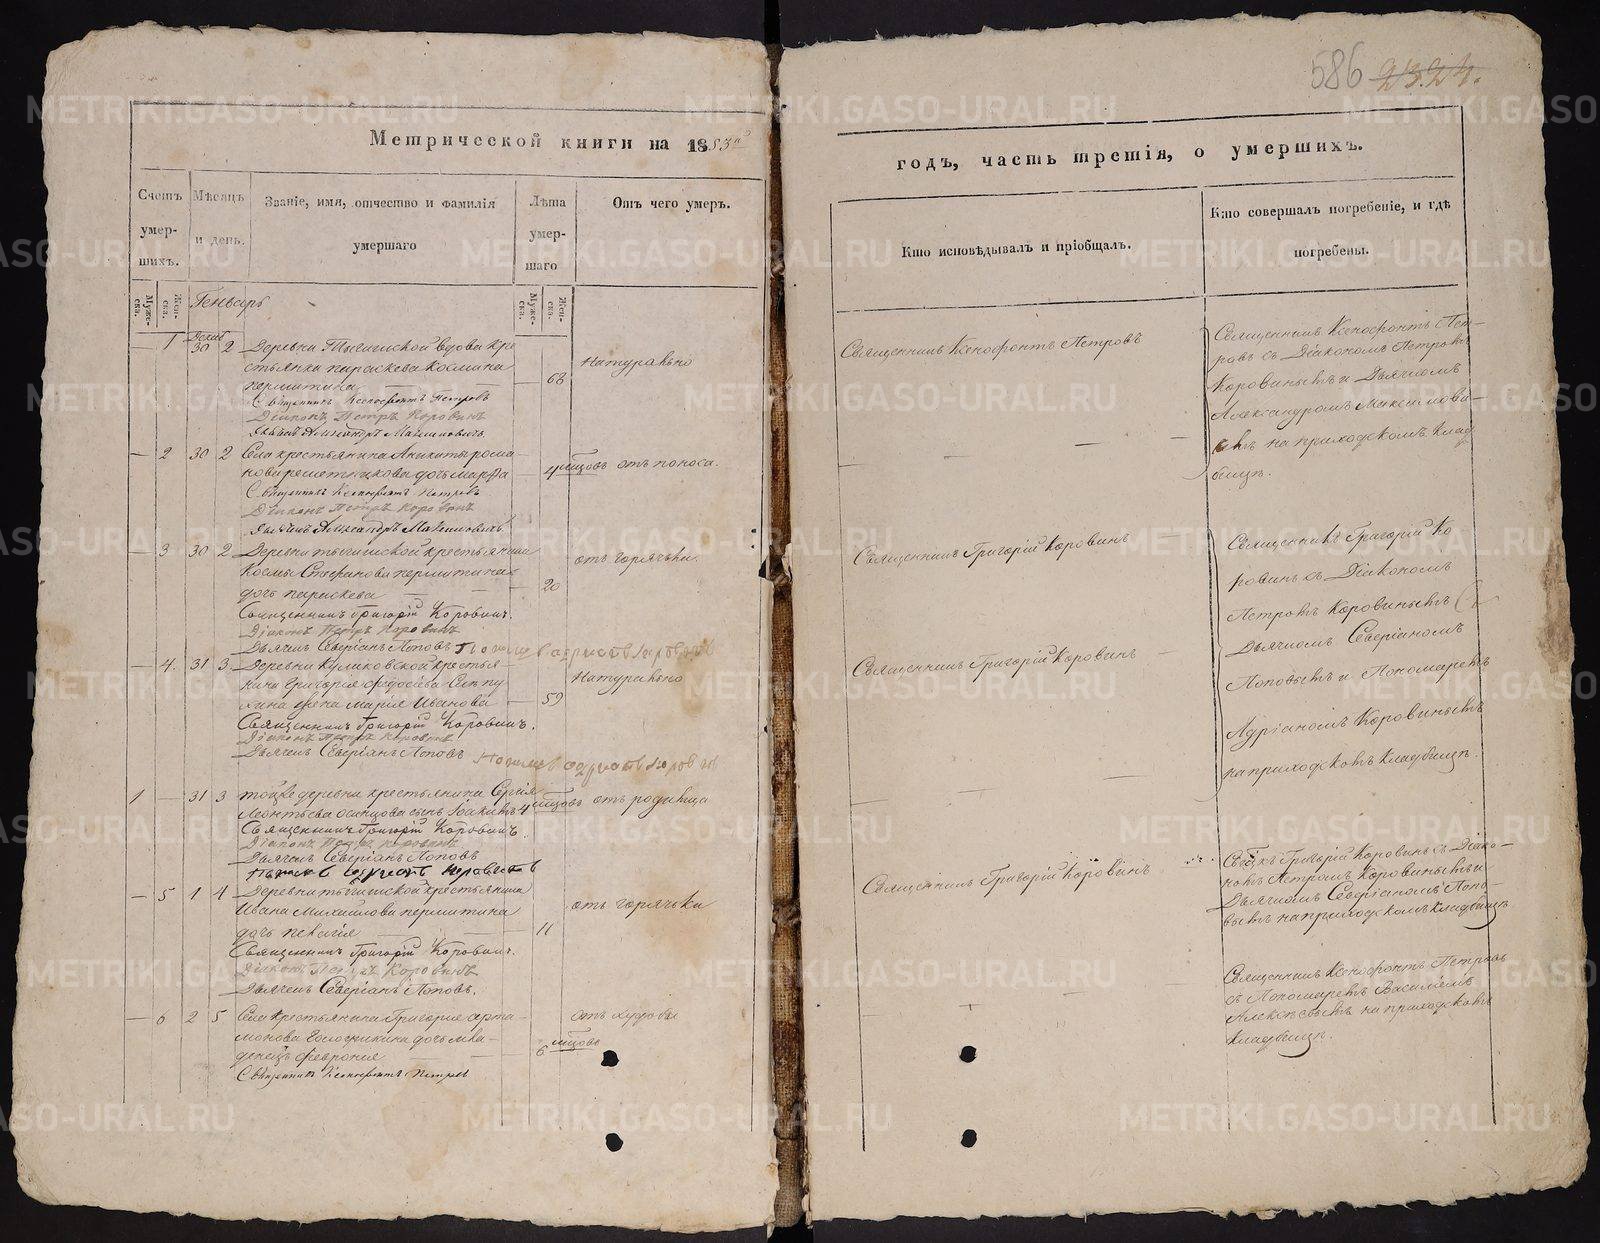 586 23.24.
Метрической книги на 1853й
годъ, часть третія, о умершихъ.
Счетъ умер-шихъ.
Мѣсяцъ и день.
Званіе, имя, отчество и фамилія
умершаго
Лѣта умер-шаго
Отъ чего умеръ.
Кто исповѣдывалъ и пріобщалъ.
Кто совершалъ погребеніе, и гдѣ
погребены.
Муже-ска.
Жен-ска.
Генварь
Муже-ска.
Жен-ска.
— 1 30 2 Деревни вдова кре
стьянка параскева космина
пермитина — 68 Натурально
Священникъ Ксенофонтъ Петровъ
Діаконъ Петръ Коровинъ
Дьячекъ Александръ Максимовичъ.
Священникъ Ксенофонтъ Петровъ
Священникъ Ксенофонтъ Пет-
ровъ съ Діакономъ Петромъ
Коровинымъ и Дьячкомъ
Александромъ Максимови-
на приходскомъ клад
бищѣ.
— 2 30 2 Села крестьянина Аникиты рома
нова решетникова дочь марфа — 4 мѣсцовъ отъ поноса.
Священникъ Ксенофонтъ Петровъ
Діаконъ Петръ Коровинъ
Дьячекъ Александръ Максимовичъ
— 3 30 2 Деревни крестьянина
космы Стефанова пермитина
дочь параскева — 20 отъ горячьки.
Священникъ Григорій Коровинъ.
Діаконъ Петръ Коровинъ
Дьячекъ Северіанъ Поповъ
Священникъ Григорій Коровинъ
Священникъ Григорій Ко
ровинъ съ Діакономъ
Петромъ Коровинымъ
Дьячкомъ Северіаномъ
Поповымъ и Пономаремъ
Адріаномъ Коровинымъ
на приходскомъ кладбищѣ.
— 4. 31 3 Деревни Куликовской крестья
нина Григорія федосѣева
жена марія Иванова — 59 Натурально
Священникъ Григорій Коровинъ.
Діаконъ Петръ Коровинъ
Дьячекъ Северіанъ Поповъ
Священникъ Григорій Коровинъ
1 — 31 3 тойже деревни крестьянина Сергія
Леонтьева осинцова сынъ Іоакимъ 4 мѣсцовъ отъ родимца
Священникъ Григорій Коровинъ.
Діаконъ Петръ Коровинъ
Дьячекъ Северіанъ Поповъ
— 5 1 4 Деревни крестьянина
Ивана михайлова пермитина
дочь пелагія — 11 отъ горячьки
Священникъ Григорій Коровинъ.
Діаконъ Петръ Коровинъ
Дьячекъ Северіанъ Поповъ.
Священникъ Григорій Коровинъ
Григорій Коровинъ съ Діако-
номъ Петромъ Коровинымъ и
Дьячкомъ Северіаномъ Попо-
вымъ на приходскомъ кладбищѣ
— 6 2 5 Села крестьянина Григорія арта-
монова дочь мла-
денецъ феврония — 6 мѣсцовъ отъ худобы
Священникъ Ксенофонтъ Петровъ
Священникъ Ксенофонтъ Петровъ
съ Пономаремъ Василіемъ
Алексѣевымъ на приходскомъ
кладбищѣ.
METRIKI.GASO-URAL.RU